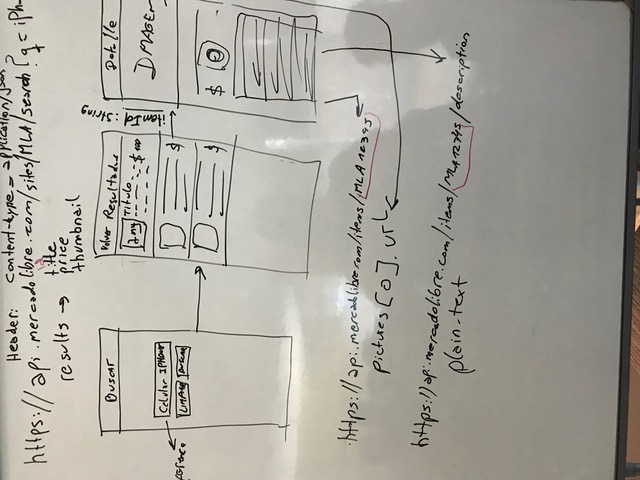 Header: content-type = application/json
https://api.mercadolibre.com/sites/MLA/search?q=iph
id
results → title
price
thumbnail
Buscar
Celular IPHONE
LIMPIAR BUSCAR
Volver Resultados
Img Titulo $ 100
$
$
itemId: String
Detalle
IMAGEN
$
https://api.mercadolibre.com/items/MLA12345
pictures[0].url
https://api.mercadolibre.com/items/MLA12345/description
plain-text